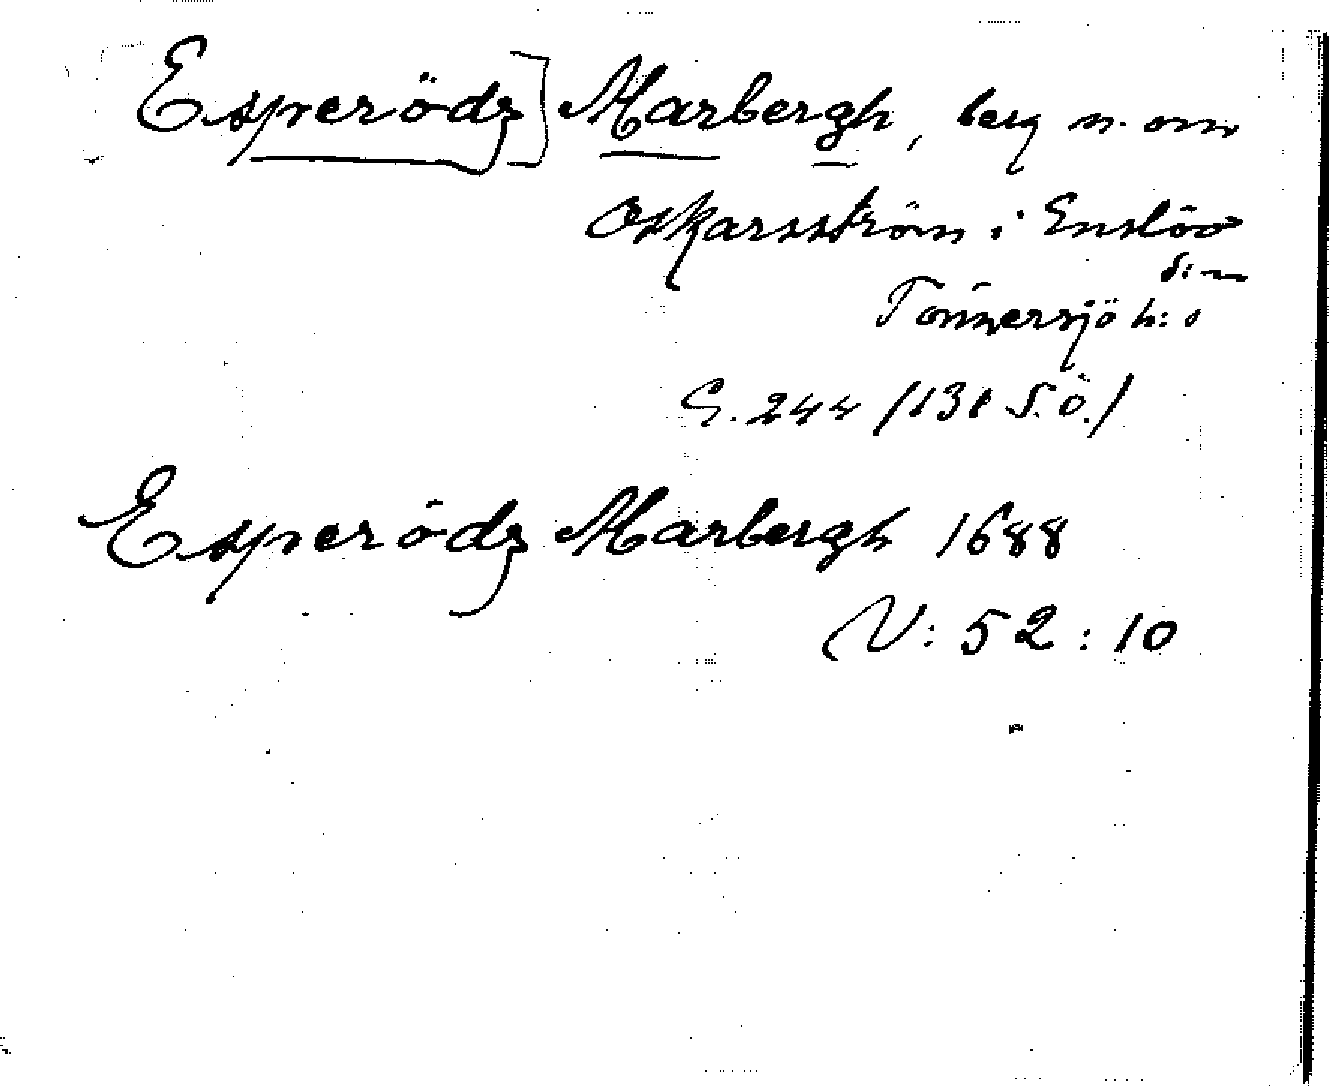 Esperödz] Marbergh, berg n. om
Oskarsström i Enslöv
s:n
Tönnersjö h:d
G. 244 /131 S.Ö./
Esperödz Marbergh 1688
N: 52:10